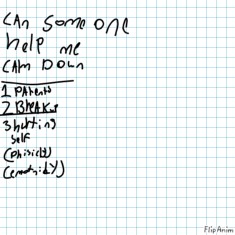 CAn Some one
help me
CAlm DOLn
1 PArents
2 BReAkup
3 hurting
self
(phisicly)
FlipAnim